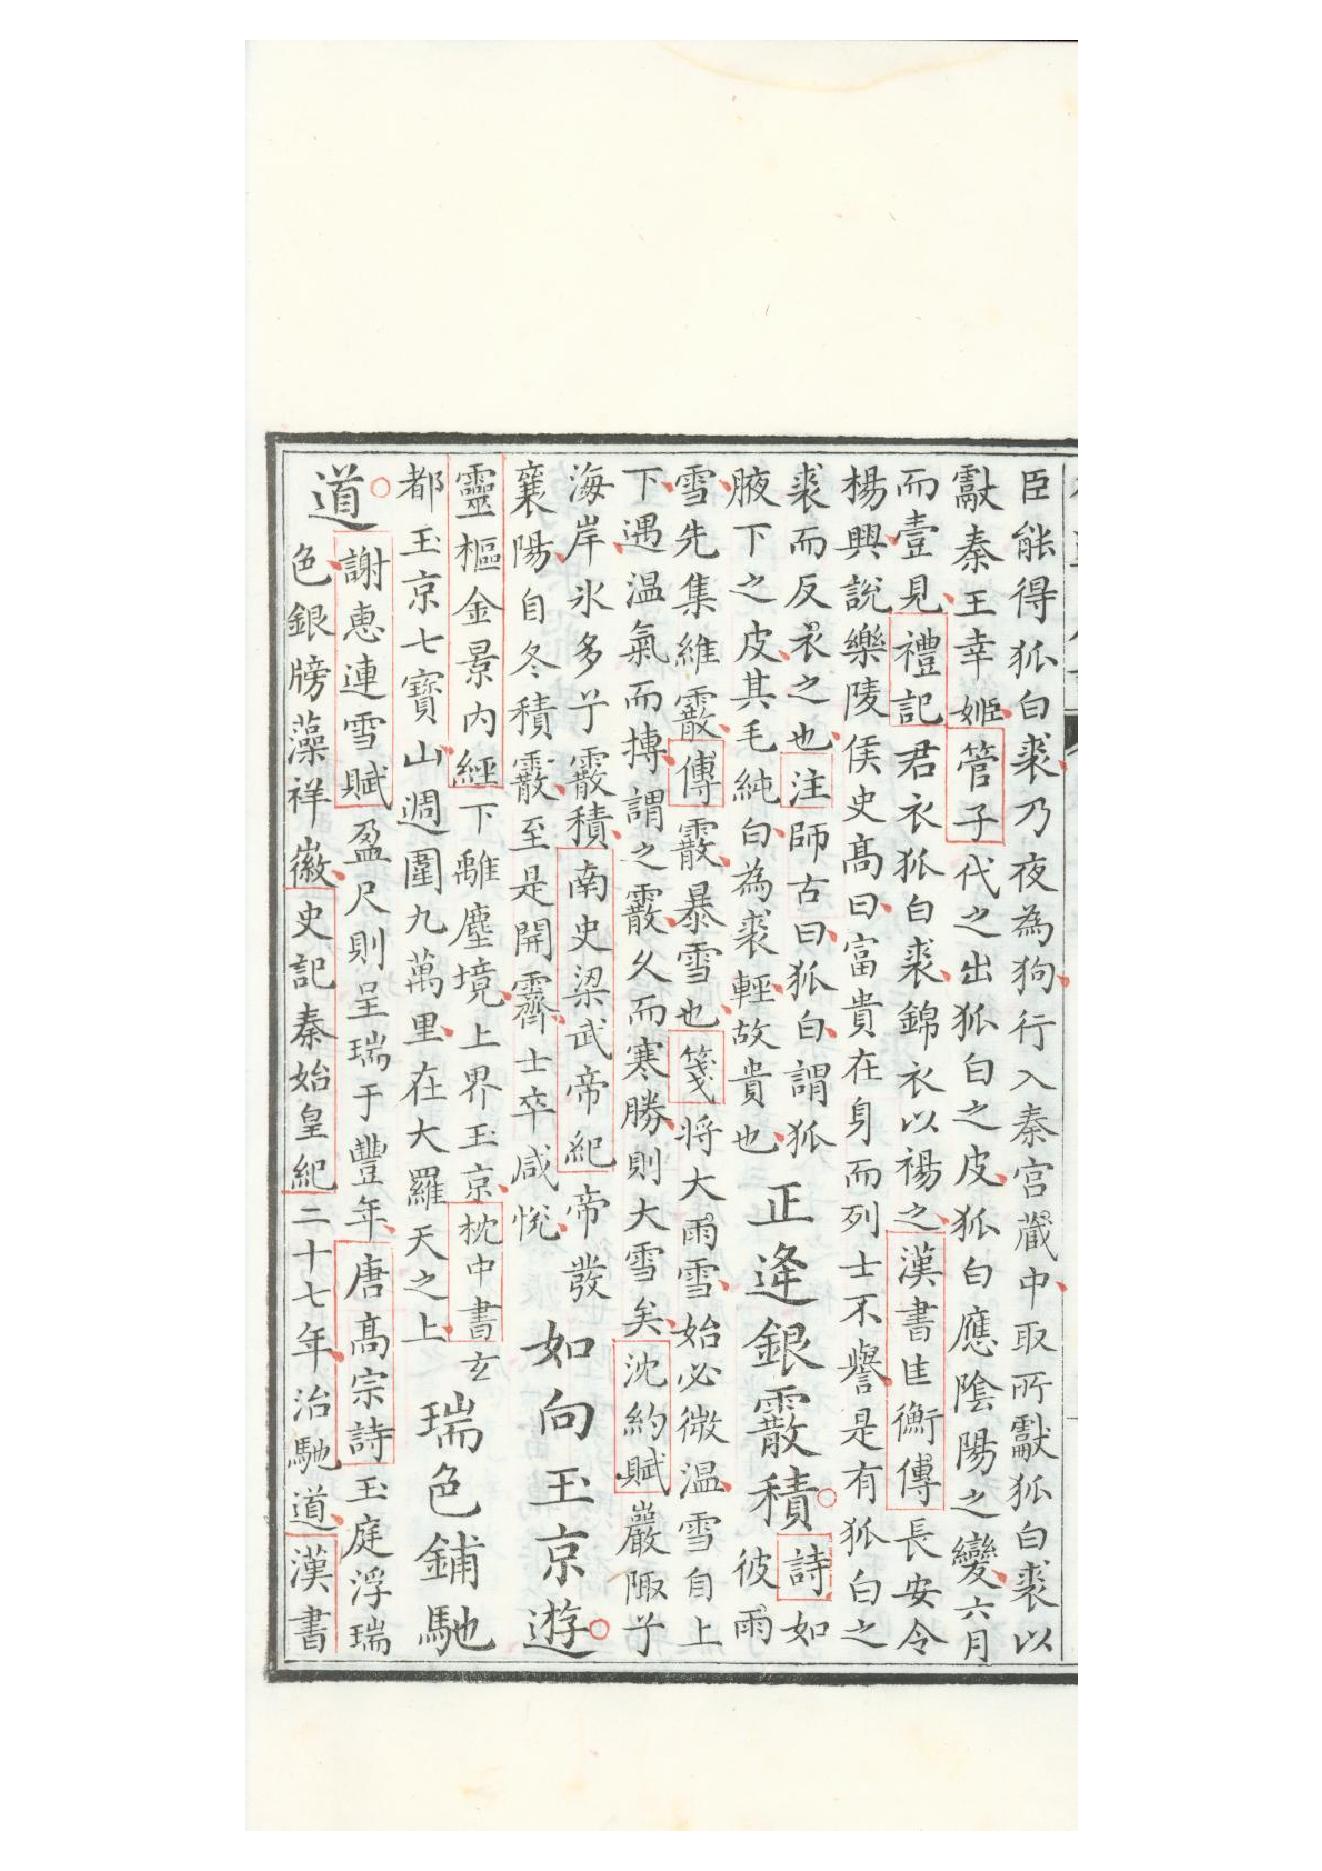 臣能得狐白裘乃夜為狗行入秦宫藏中取所獻狐白裘以
獻秦王幸姬管子代之出狐白之皮狐白應陰陽之變六月
而壹見禮記君衣狐白裘錦衣以裼之漢書匡衡傳長安令
楊興說樂陵侯史髙曰富貴在身而列士不譽是有狐白之
裘而反衣之也注師古曰狐白謂狐
腋下之皮其毛純白為裘輕故貴也
正逢銀霰積
詩如
彼雨
雪先集維霰傳霰暴雪也箋将大雨雪始必微温雪自上
下遇温氣而摶謂之霰久而寒勝則大雪矣沈約賦巖陬兮
海岸氷多兮霰積南史梁武帝紀帝發
襄陽自冬積霰至是開霽士卒咸悅
如向玉京遊
靈樞金景内經下離塵境上界玉京枕中書玄
都玉京七寳山週圍九萬里在大羅天之上
瑞色鋪馳
道
謝惠連雪賦盈尺則呈瑞于豐年唐髙宗詩玉庭浮瑞
色銀牓藻祥徽史記秦始皇紀二十七年治馳道漢書